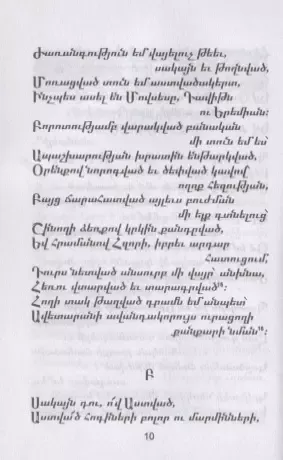 Ժառանգություն եմ վայելուչ թեեւ,
սակայն եւ թողնված,
Մոռացված տուն եմ աստվածակերտ,
Ինչպես ասել են Մովսեսը, Դավիթն
ու Երեմիան:
Բորոտությամբ վարակված բանական
մի տուն եմ ես՝
Ապաշխարության խրատին ենթարկված,
Օրենքով նորոգված եւ ծեփված կավով
ողոք հեզության,
Բայց ճարահատված այլեւս բուժման
մի ելք գտնելուց՝
Շինողի ձեռքով կրկին քանդված,
Եվ Հրամանով Հզորի, իբրեւ արդար
հատուցում,
Դուրս նետված անսուրբ մի վայր՝ անխնա,
Հեռու վտարված եւ տարագրված:
Հողի տակ թաղված դրամն եմ անպետ՝
Ավետարանի ավանդակորույս ուրացողի
քանքարի նման:
Բ
Սակայն դու, ո՜վ Աստված,
Աստվա՜ծ հոգիների բոլոր ու մարմինների,
10